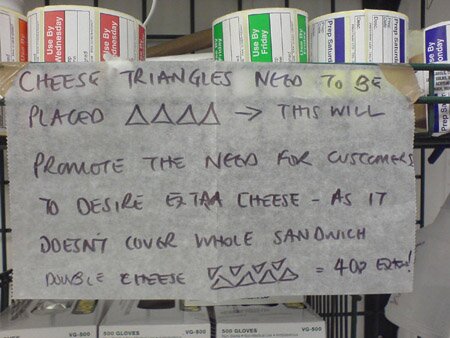 Use By Wednesday
Use By Friday
Prep Saturday
CHEESE TRIANGLES NEED TO BE
PLACED △△△△ → THIS WILL
PROMOTE THE NEED FOR CUSTOMERS
TO DESIRE EXTRA CHEESE - AS IT
DOESN'T COVER WHOLE SANDWICH
DOUBLE CHEESE △▽△▽△▽△ = 40p EXTRA!
VG-500
500 GLOVES
VG-500
500 GLOVES
VG-500